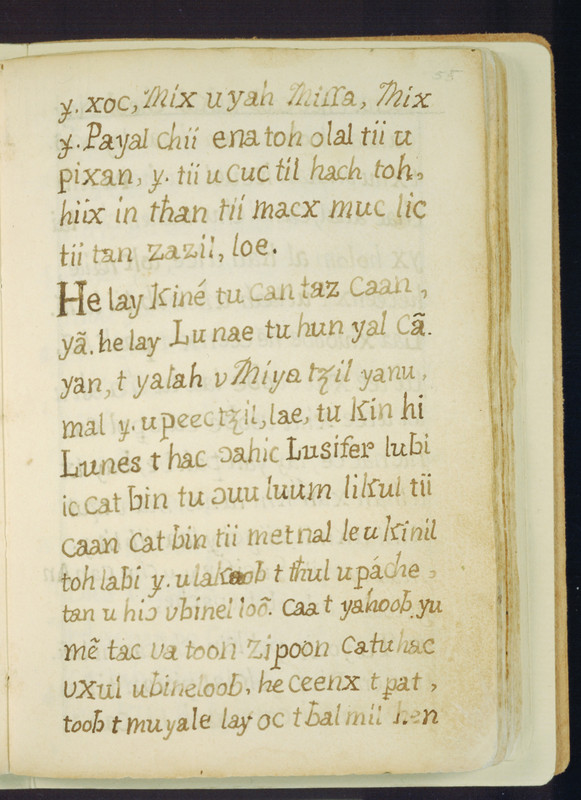 58
ɏ. xoc, Mix u yah Missa, Mix
ɏ. Payal chíí ena toh olal tíí u
pixan, ɏ. tíí u cuc til hach toh,
híix in than tíí macx muc lic
tíí tan zazil, loe.
He lay Kiné tu can taz caan,
yã. he lay Lunae tu hun yal cã.
yan, t yalah v Miyatꜩil yanu,
mal ɏ. u peectꜩil, lae, tu Kin hi
Lunes t hac ɔahic Lusifer lubi
ic cat bin tu ɔuu luum likul tíí
caan cat bin tíí metnal le u kinil
toh labi ɏ. u lakoob t thul u páche,
tan u hiɔ vbinel loõ. caa t yahoob yu
mẽ tac va tooh Zipoon catu hac
vxul ubineloob, he ceenx t pat,
toob t muyale lay oc t bal mil hen